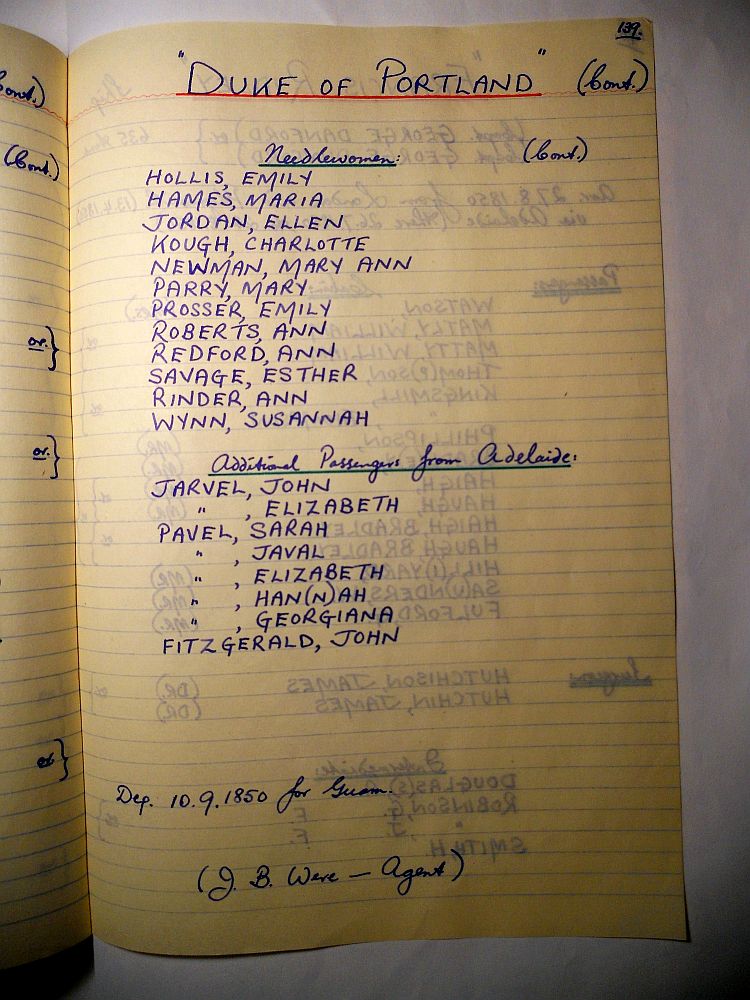 139.
"DUKE OF PORTLAND" (Cont.)
Needlewomen: (Cont.)
HOLLIS, EMILY
HAMES, MARIA
JORDAN, ELLEN
KOUGH, CHARLOTTE
NEWMAN, MARY ANN
PARRY, MARY
PROSSER, EMILY
ROBERTS, ANN
REDFORD, ANN
SAVAGE, ESTHER
RINDER, ANN
WYNN, SUSANNAH
Additional Passengers from Adelaide:
JARVEL, JOHN
" , ELIZABETH
PAVEL, SARAH
" , JAVAL
" , ELIZABETH
" , HAN(N)AH
" , GEORGIANA
FITZGERALD, JOHN
Dep. 10.9.1850 for Guam.
(J. B. Were — Agent)
(Cont.)
or. }
or. }